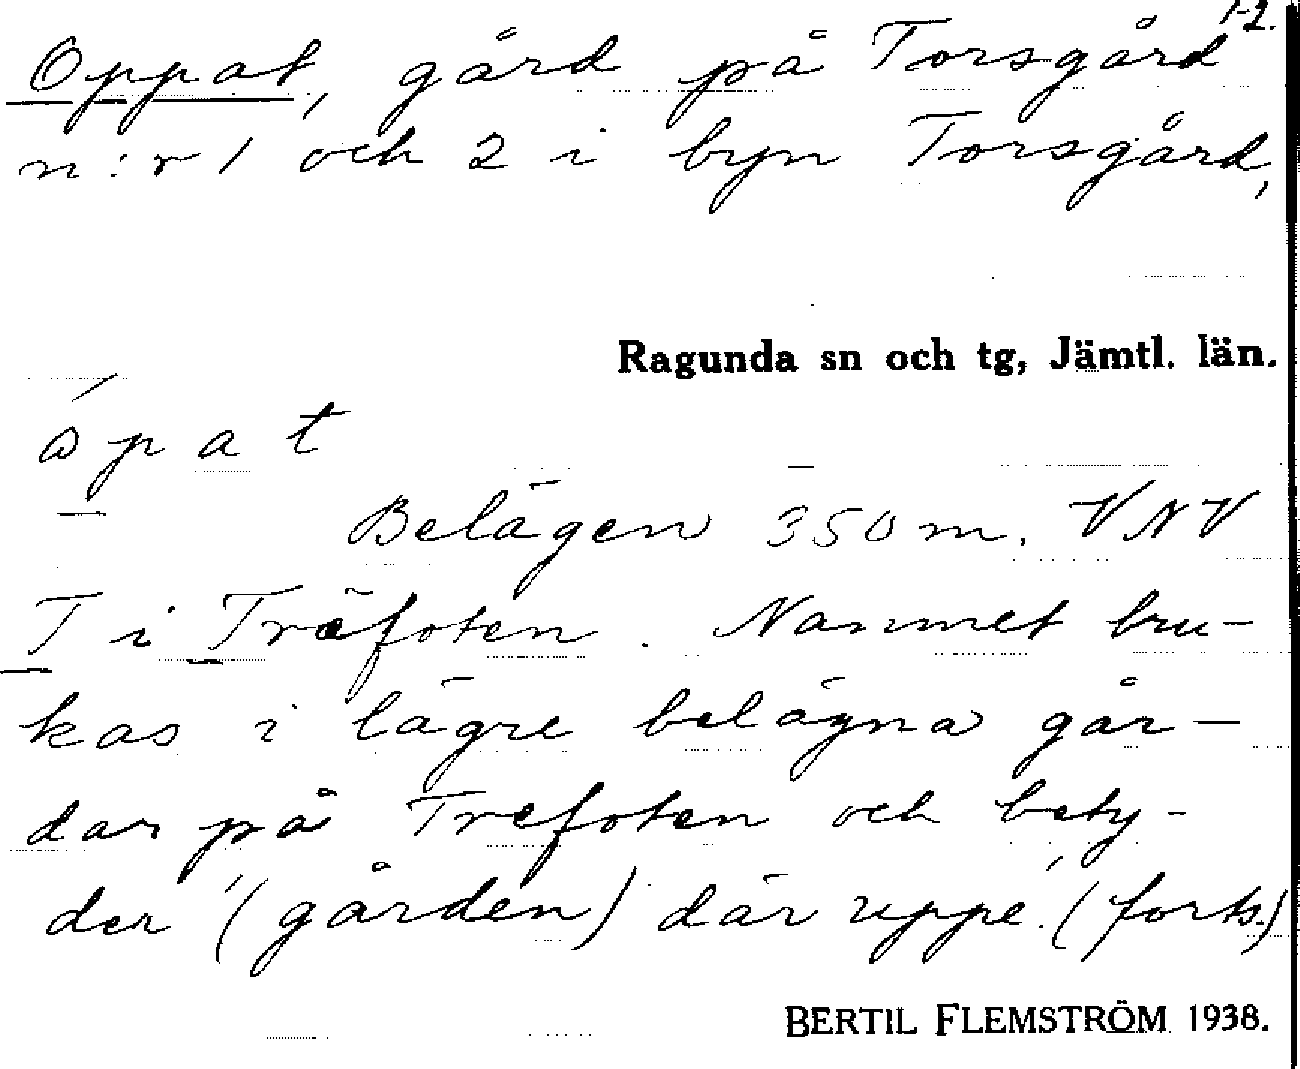 1-2.
Oppat, gård på Torsgård
n:r 1 och 2 i byn Torsgård,
Ragunda sn och tg, Jämtl. län.
ópat
Belägen 350 m. VNV
T i Träfoten. Namnet bru-
kas i lägre belägna går-
dar på Trefoten och bety-
der '(gården) där uppe'. (forts.)
BERTIL FLEMSTRÖM 1938.